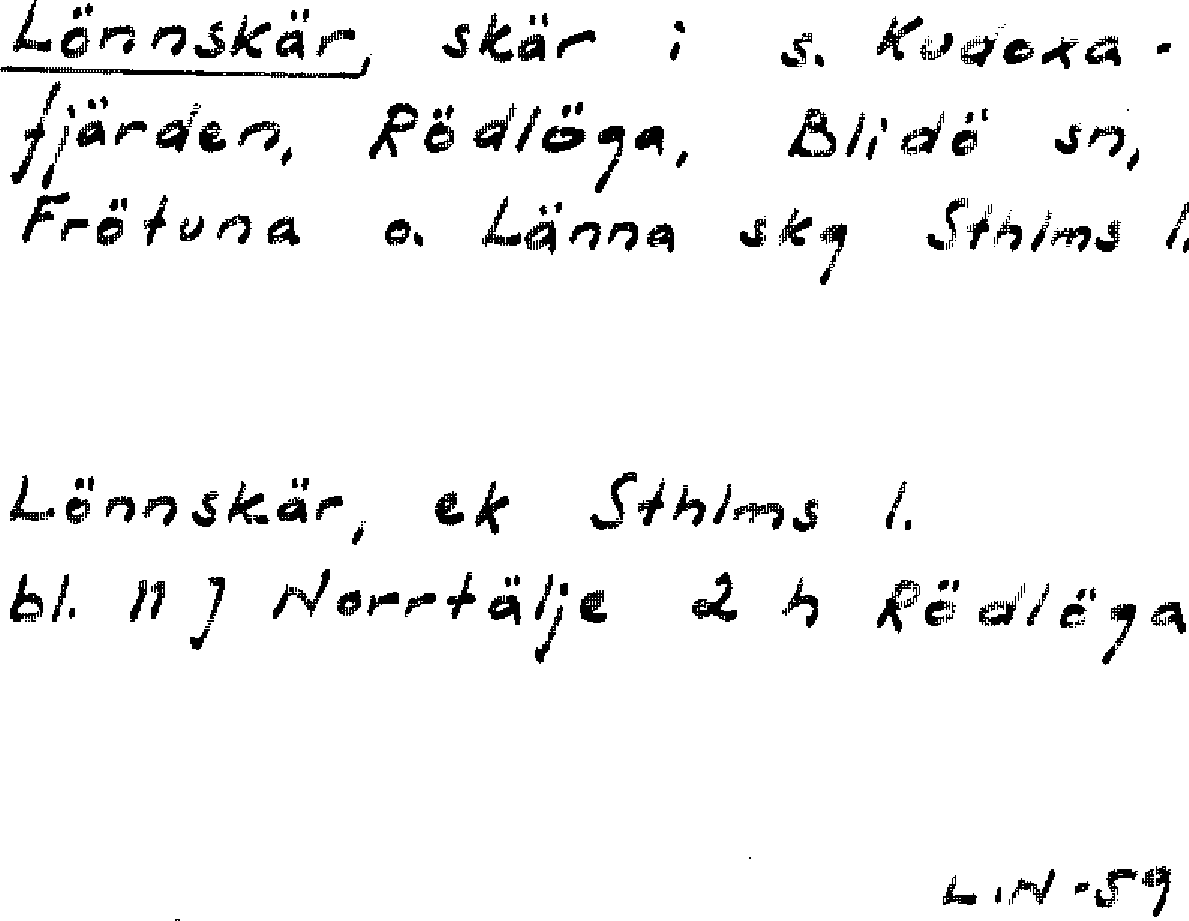 Lönnskär, skär i s. Kudoxa-
fjärden, Rödlöga, Blidö sn,
Frötuna o. Länna skg Sthlms l.
Lönnskär, ek Sthlms l.
bl. 11 J Norrtälje 2 h Rödlöga
L.N -59